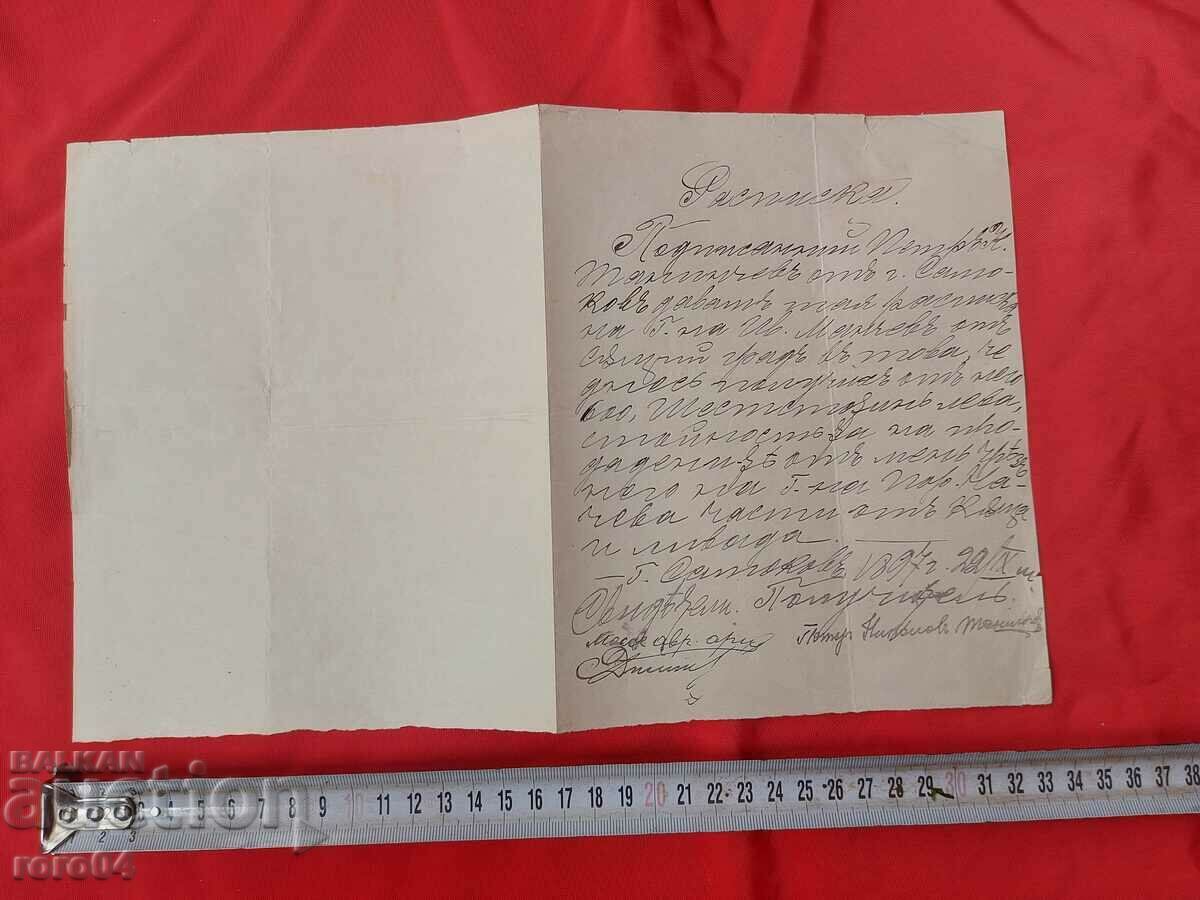 Расписка.
Подписанний Петръ Н.
Танчинчевъ отъ г. Само-
ковъ давамъ тая расписка
на Г-на Ив. Манчевъ отъ
сѫщий градъ въ това, че
днесь получихъ отъ него
600, Шестстотинъ лева,
стойностьта на про-
даденитѣ отъ мень чрѣзъ
него на Г-на Пов. На-
чева части отъ Кѫща
и ливада.
Г. Самоковъ 1897 г. 22/IX
Свидѣтели: Получитель:
Петур Николов
BALKAN
auction
roro04
1 2 3 4 5 6 7 8 9 10 11 12 13 14 15 16 17 18 19 20 21 22 23 24 25 26 27 28 29 30 31 32 33 34 35 36 37 38